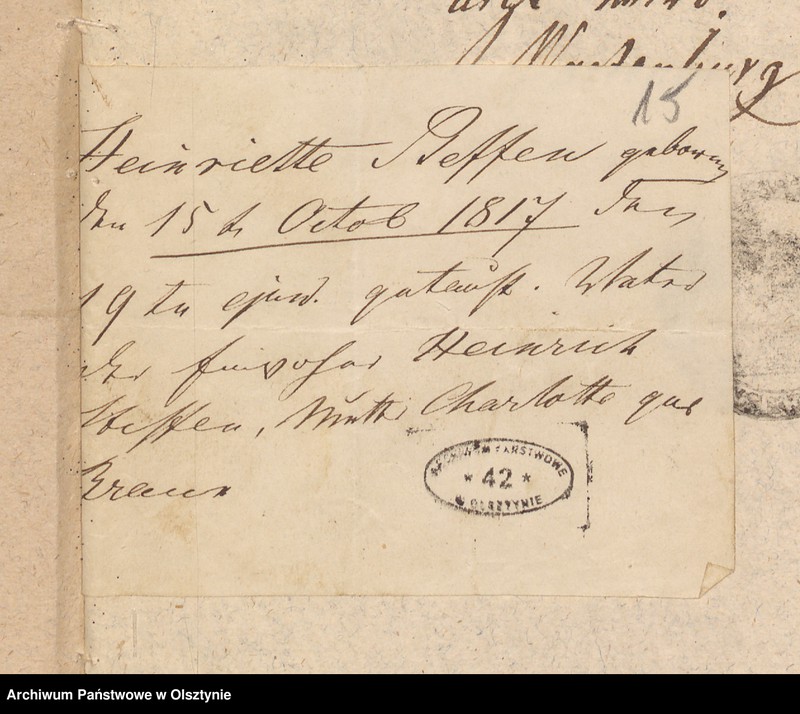 Wartenburg
15
Heinriette Steffen geboren
den 15 t Octob 1817 den
19 tn ejusd. getauft. Vater
der Heinrich
Steffen, Mutter Charlotte geb
Braun
ARCHIWUM PAŃSTWOWE
* 42 *
W OLSZTYNIE
Archiwum Państwowe w Olsztynie